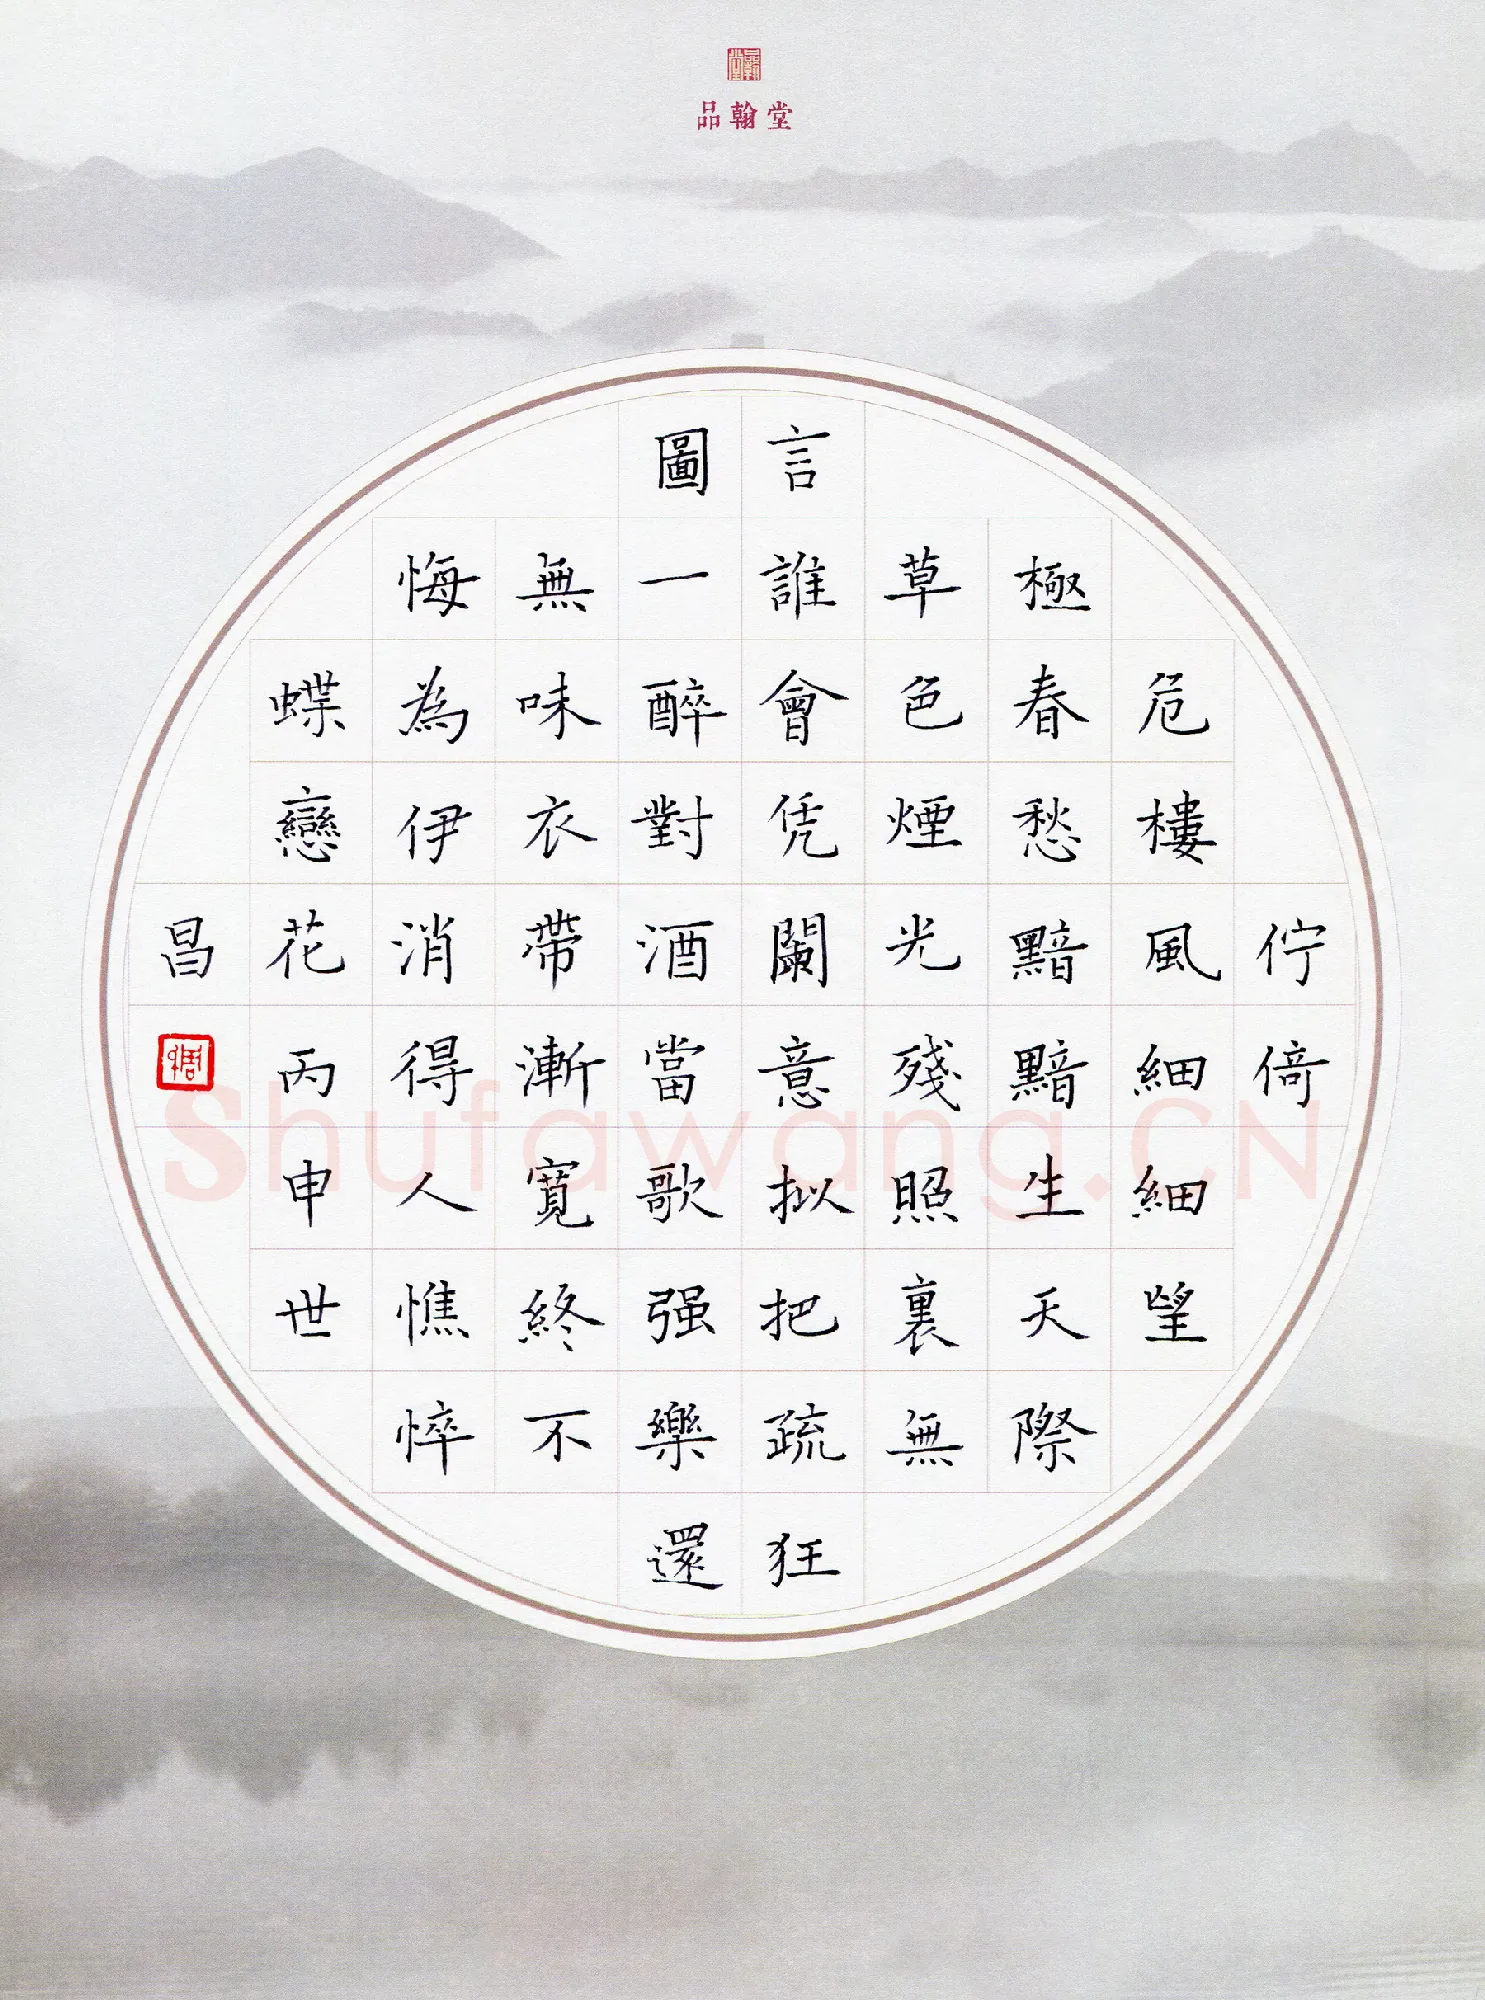 品翰堂
佇倚
危樓風細細望
極春愁黯黯生天際
草色煙光殘照裏無
言誰會凭闌意拟把疏狂
圖一醉對酒當歌强樂還
無味衣帶漸寬終不
悔為伊消得人憔悴
蝶戀花丙申世
昌
Shufawang.CN